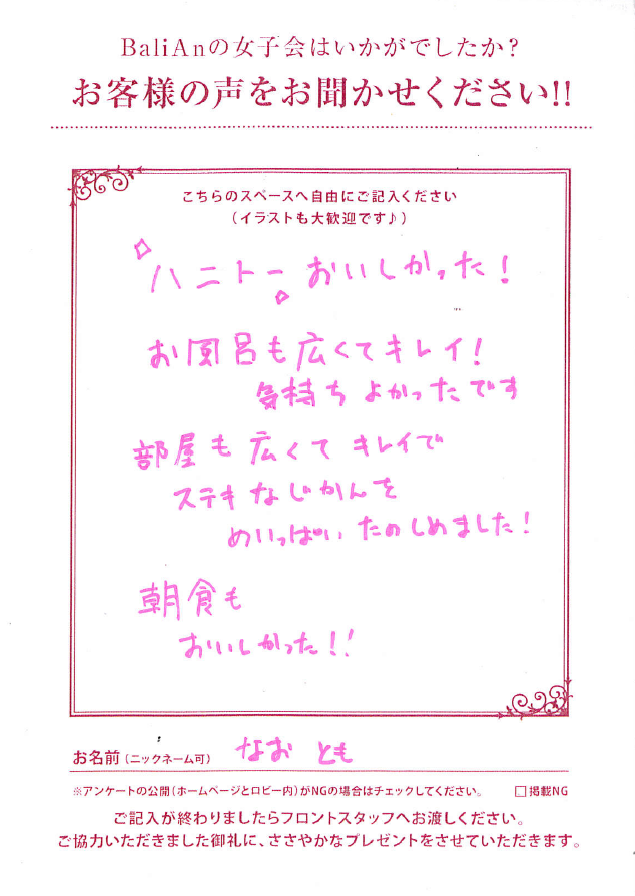 BaliAnの女子会はいかがでしたか?
お客様の声をお聞かせください!!
こちらのスペースへ自由にご記入ください
(イラストも大歓迎です♪)
ハニトーおいしかった!
お風呂も広くてキレイ!
気持ちよかったです
部屋も広くてキレイで
ステキなじかんを
めいっぱいたのしめました!
朝食も
おいしかった!!
お名前(ニックネーム可) なお とも
※アンケートの公開(ホームページとロビー内)がNGの場合はチェックしてください。 □掲載NG
ご記入が終わりましたらフロントスタッフへお渡しください。
ご協力いただきました御礼に、ささやかなプレゼントをさせていただきます。